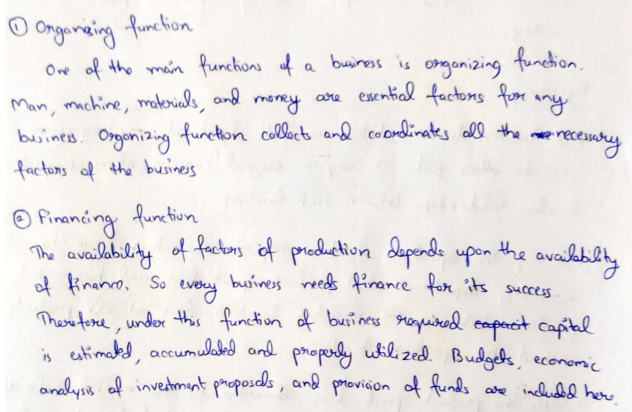 ① Organizing function
One of the main functions of a business is organizing function.
Man, machine, materials, and money are essential factors for any
business. Organizing function collects and coordinates all the necessary
factors of the business
② Financing function
The availability of factors of production depends upon the availability
of finance. So every business needs finance for its success.
Therefore, under this function of business required capital
is estimated, accumulated and properly utilized. Budgets, economic
analysis of investment proposals, and provision of funds are included here.